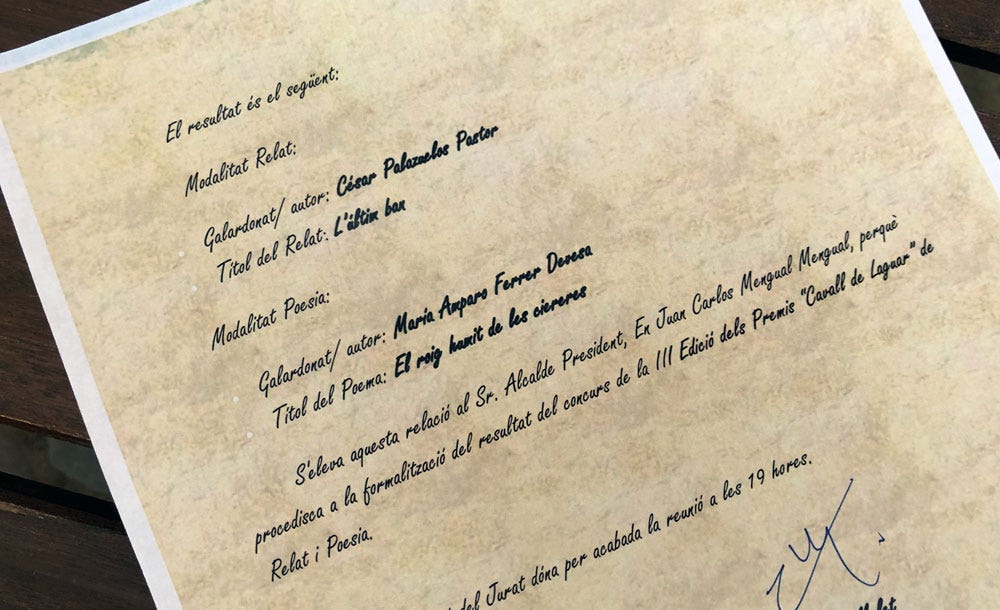 El resultat és el següent:
Modalitat Relat:
Galardonat/ autor: César Palazuelos Pastor
Títol del Relat: L'últim ban
Modalitat Poesia:
Galardonat/ autor: María Amparo Ferrer Devesa
Títol del Poema: El roig humit de les ciereres
S'eleva aquesta relació al Sr. Alcalde President, En Juan Carlos Mengual Mengual, perquè
procedisca a la formalització del resultat del concurs de la III Edició dels Premis "Cavall de Laguar" de
Relat i Poesia.
del Jurat dóna per acabada la reunió a les 19 hores.